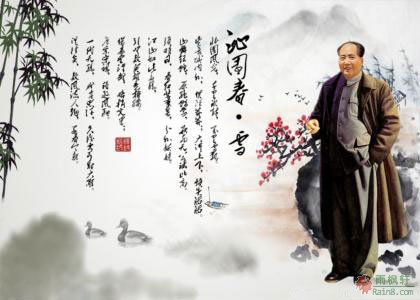 沁园春·雪
北国风光，千里冰封，万里雪飘
望长城内外，惟余莽莽，大河上下，顿失滔滔
山舞银蛇，原驰蜡象，欲与天公试比高
须晴日，看红装素裹，分外妖娆
江山如此多娇
引无数英雄竞折腰
惜秦皇汉武，略输文采
唐宗宋祖，稍逊风骚
一代天骄，成吉思汗，只识弯弓射大雕
俱往矣，数风流人物，还看今朝
雨枫轩
Rain8.com